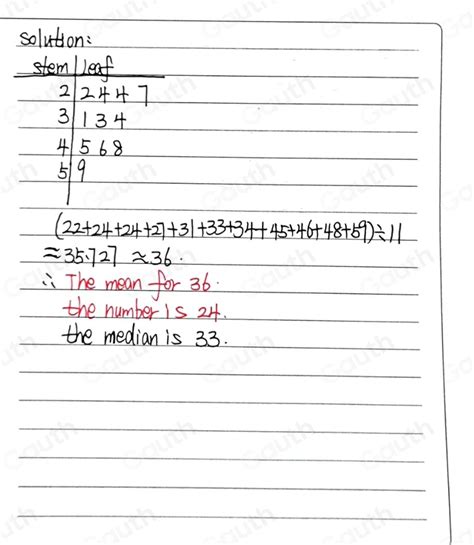 solution:
stem | leaf
2 | 2 4 4 7
3 | 1 3 4
4 | 5 6 8
5 | 9
(22+24+24+27+31+33+34+45+46+48+59)÷11
≈35.727 ≈36.
∴ The mean for 36.
the number is 24.
the median is 33.